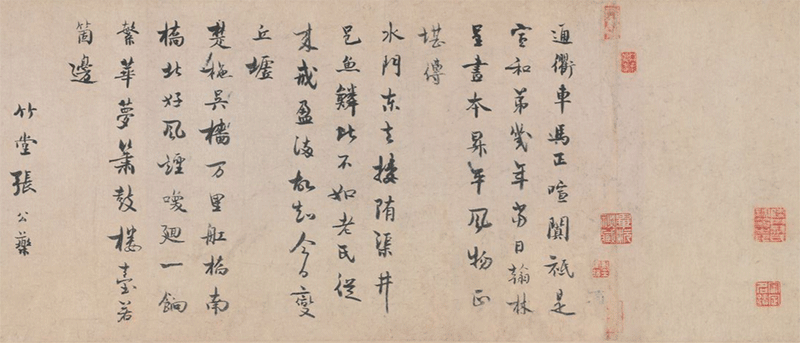 通衢車馬正喧闐祗是
宣和第幾年當日翰林
呈畫本昇平風物正
堪傳
水門東去接隋渠井
邑魚鱗比不如老氏從
來戒盈滿故知今日變
丘墟
楚柂吳檣万里舡橋南
橋北好風煙喚迴一餉
繁華夢簫鼓樓臺若
箇邊
竹堂張公藥